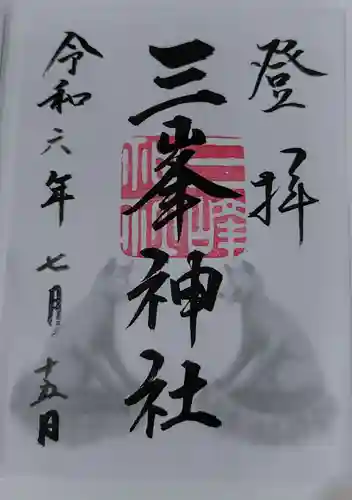 登拝
三峯神社
令和六年七月十五日